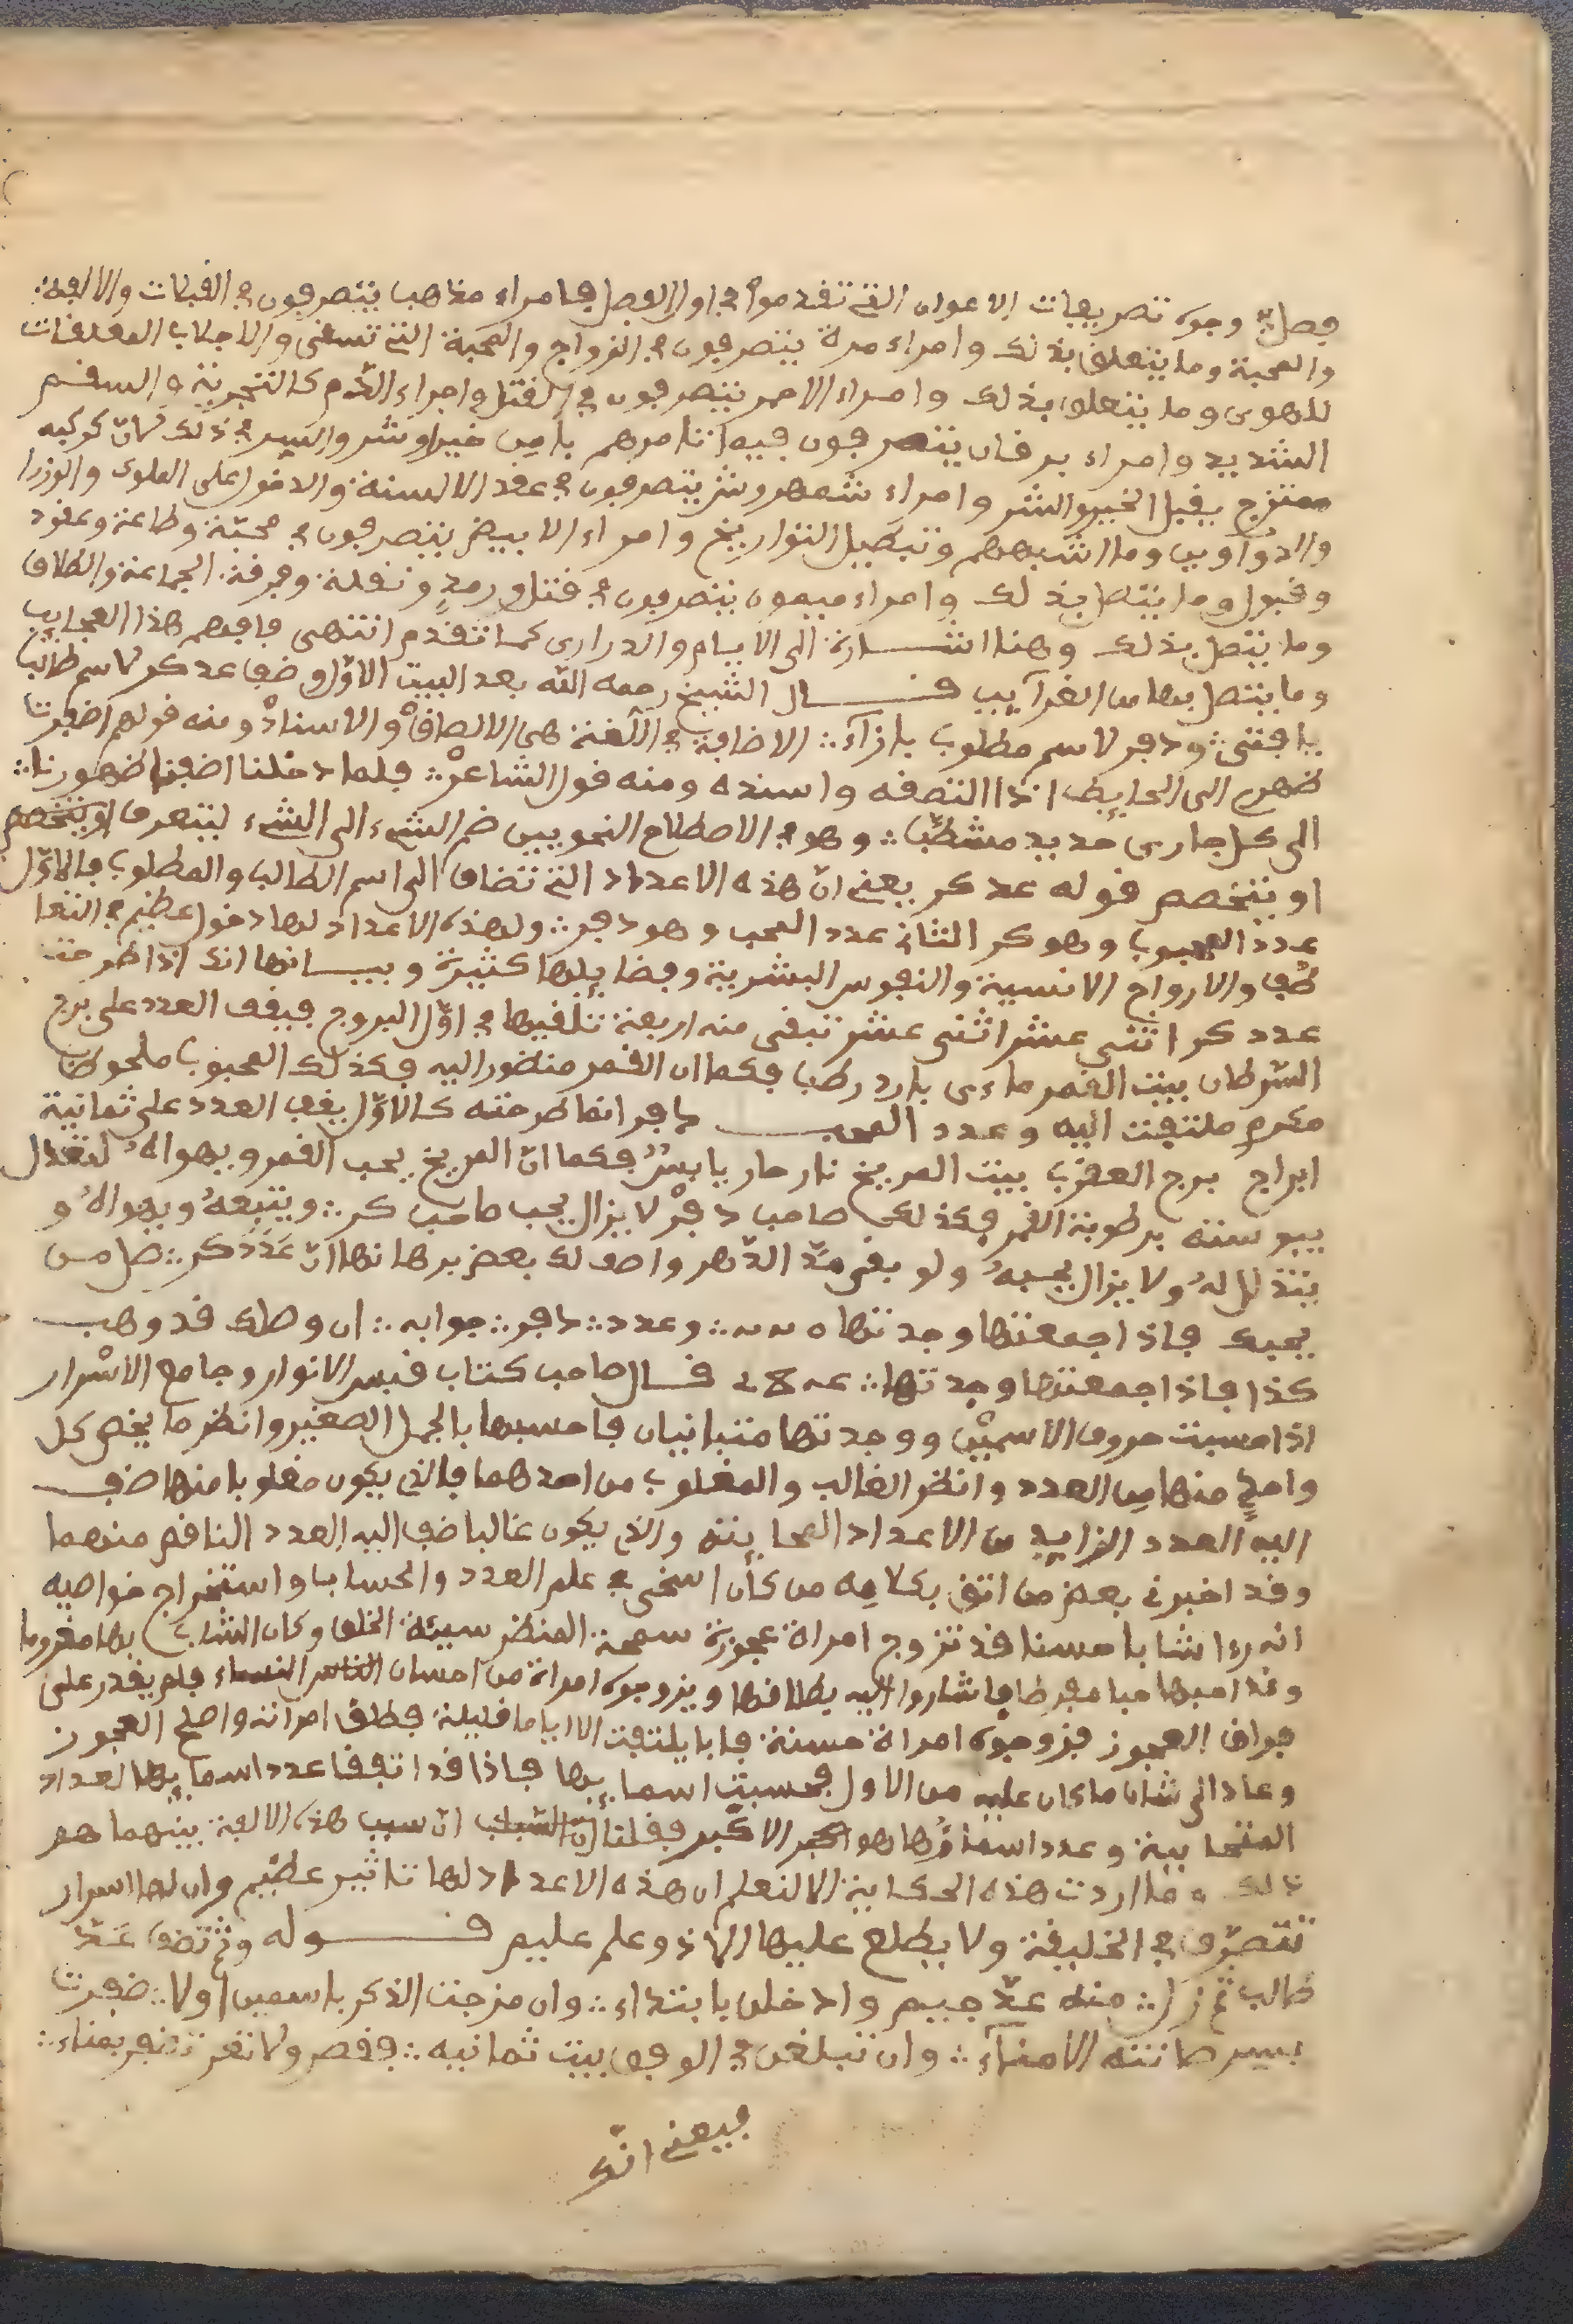 فصل في وجوه تصريفات الاعوان التي تقدموا في اول الفصل فامراء مذاهب يتصرفون في القبلات والالفة
والمحبة وما يتعلق بذلك وامراء مرة يتصرفون في الزواج والمحبة التي تسفى والاجلاب المعلقات
للهوى وما يتعلق بذلك وامراء الاحمر يتصرفون في القتل واجراء الدم كالتجرية والسقم
الشديد وامراء برقان يتصرفون فيه اتنامرهم بامن خير او شر والسير في ذلك لان كوكبه
ممتزج يقبل الخير والشر وامراء شمهروش يتصرفون في عقد الالسنة والدخول على الملوك والوزرا
والدواوين وما اشبههم وتبطيل التواريخ وامراء الابيض يتصرفون في محبة وطاعة وعقود
وقبول وما يتصل بذلك وامراء ميمون يتصرفون في قتل ورمد ونقلة وفرقة الجماعة والطلاق
وما يتصل بذلك وهنا اشارة الى الايام والدراري كما تقدم انتهى فافهم هذا العجايب
وما يتصل بها من الغرآيب قال الشيخ رحمه الله بعد البيت الاول وضف عد كر لاسم طالب
يافتى ∴ ودفر لاسم مطلوب بازآء ∴ الاضافة في اللغة هي الالصاق والاسناد ومنه قولهم اضفت
ظهري الى الحايط اذا التصقه واسنده ومنه قول الشاعر ∴ فلما دخلنا اضفنا ظهورنا ∴
الى كل جاري حديد مشطب ∴ وهو في الاصطلاح النحويين ضم الشيء الى الشيء ليتعرف او يتخصص
او يتخصص قوله عد كر يعني ان هذه الاعداد التي تضاف الى اسم الطالب والمطلوب فالاول
عدد المحبوب وهو كر الثاني عدد المحب وهو دفر ∴ ولهذه الاعداد لها دخول عظيم في التعا
طف والارواح الانسية والنفوس البشرية وفضايلها كثيرة وبيانها انك اذا طرحت
عدد كر اثنى عشر اثنى عشر تبقى منه اربعة تلقيها في اول البروج فيقف العدد على برج
السرطان بيت القمر ماءى بارد رطب فكما ان القمر منضور اليه فكذلك المحبوب ملحوظ
مكرم ملتفت اليه وعدد المحب دفر انما طرحته كالاول يقف العدد على ثمانية
ابراج برج العقرب بيت المريخ نار حار يابس فكما ان المريخ يحب القمر ويهواه لتعدل
يبوسته برطوبة القمر فكذلك صاحب دفر لا يزال يحب صاحب كر ∴ ويتبعه ويهواه و
يتذلل له ولا يزال يحبه ولو بقى مد الدهر واصف لك بعض برهانها ان عدد كر ∴ صل من
يحبك فاذا جمعتها وجدتها ∴ وعدد ∴ دفر ∴ جوابه ∴ ان وصلك قد وهب
كذا فاذا جمعتها وجدتها ∴ قال صاحب كتاب قبس الانوار وجامع الاسرار
اذا حسبت حروف الاسمين ووجدتها متباينان فاحسبها بالجمل الصغير وانظر ما يخص كل
واحد منها من العدد وانظر الغالب والمغلوب من احدهما فالذي يكون مغلوبا منها ضف
اليه العدد الزايد من الاعداد المحابنته والذي يكون غالبا ضف اليه العدد الناقص منهما
وقد اخبرني بعض من اتق بكلامه من كان اسخى في علم العدد والحساب واستخراج خواصه
انه رءا شابا حسنا قد تزوج امراة عجوزة سمجة المنظر سيئة الخلق وكان الشاب بها مغروما
وقد احبها حبا مفرطا فاشاروا اليه بطلاقها ويزوجوه امراة من احسان الناس النساء فلم يقدر على
فراق العجوز فزوجوه امراة حسنة فابا يلتفت الا اياما قليلة فطلق امراته واصلح العجوز
وعاد الى شان ما كان عليه من الاول فحسبت اسمايها فاذا قد اتفقا عدد اسمايها العداد
المتحابية وعدد اسماؤها هو الاكبر فقلنا ان سبب هذه الالفة بينهما هو
ذلك وما اردت هذه الحكاية الا لتعلم ان هذه الاعداد لها تاثير عظيم وان لها اسرار
تتصرف في الخليقة ولا يطلع عليها الا ذو علم عليم قوله
طالب ثم زل ∴ منه عد جيم وادخلن بابتداء ∴ وان مزجت الذكر باسمين اولا ∴ ضفرت
بسر صانته الامناء ∴ وان تبلغن في الوفق بيت ثمانيه ∴ فقصر ولا تغر تضفر بمناء ∴
فيعني انك